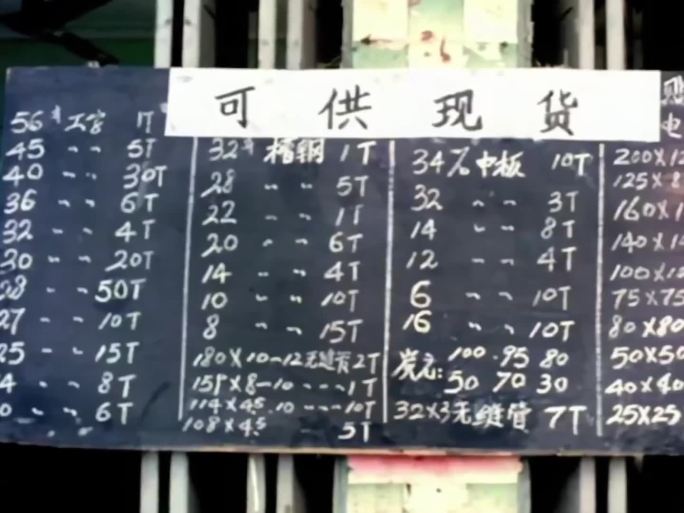 可供现货
56# 工字 1T
45 〃 〃 5T
40 〃 〃 30T
36 〃 〃 6T
32 〃 〃 4T
30 〃 〃 20T
28 〃 〃 50T
27 〃 〃 10T
25 〃 〃 15T
〃 〃 8T
〃 〃 6T
32# 槽钢 1T
28 〃 〃 5T
22 〃 〃 1T
20 〃 〃 6T
14 〃 〃 4T
10 〃 〃 10T
8 〃 〃 15T
180×10-12无缝管2T
159×8-10 〃 〃 〃 1T
114×4.5.10 〃 〃 〃 10T
108×4.5 5T
34% 中板 10T
32 〃 〃 3T
14 〃 〃 8T
12 〃 〃 4T
6 〃 〃 10T
16 〃 〃 10T
炭元:100.95 80
50 70 30
32×3无缝管 7T
电
200×12
125×8
160×1
140×14
100×1
75×75
80×80
50×50
40×40
25×25